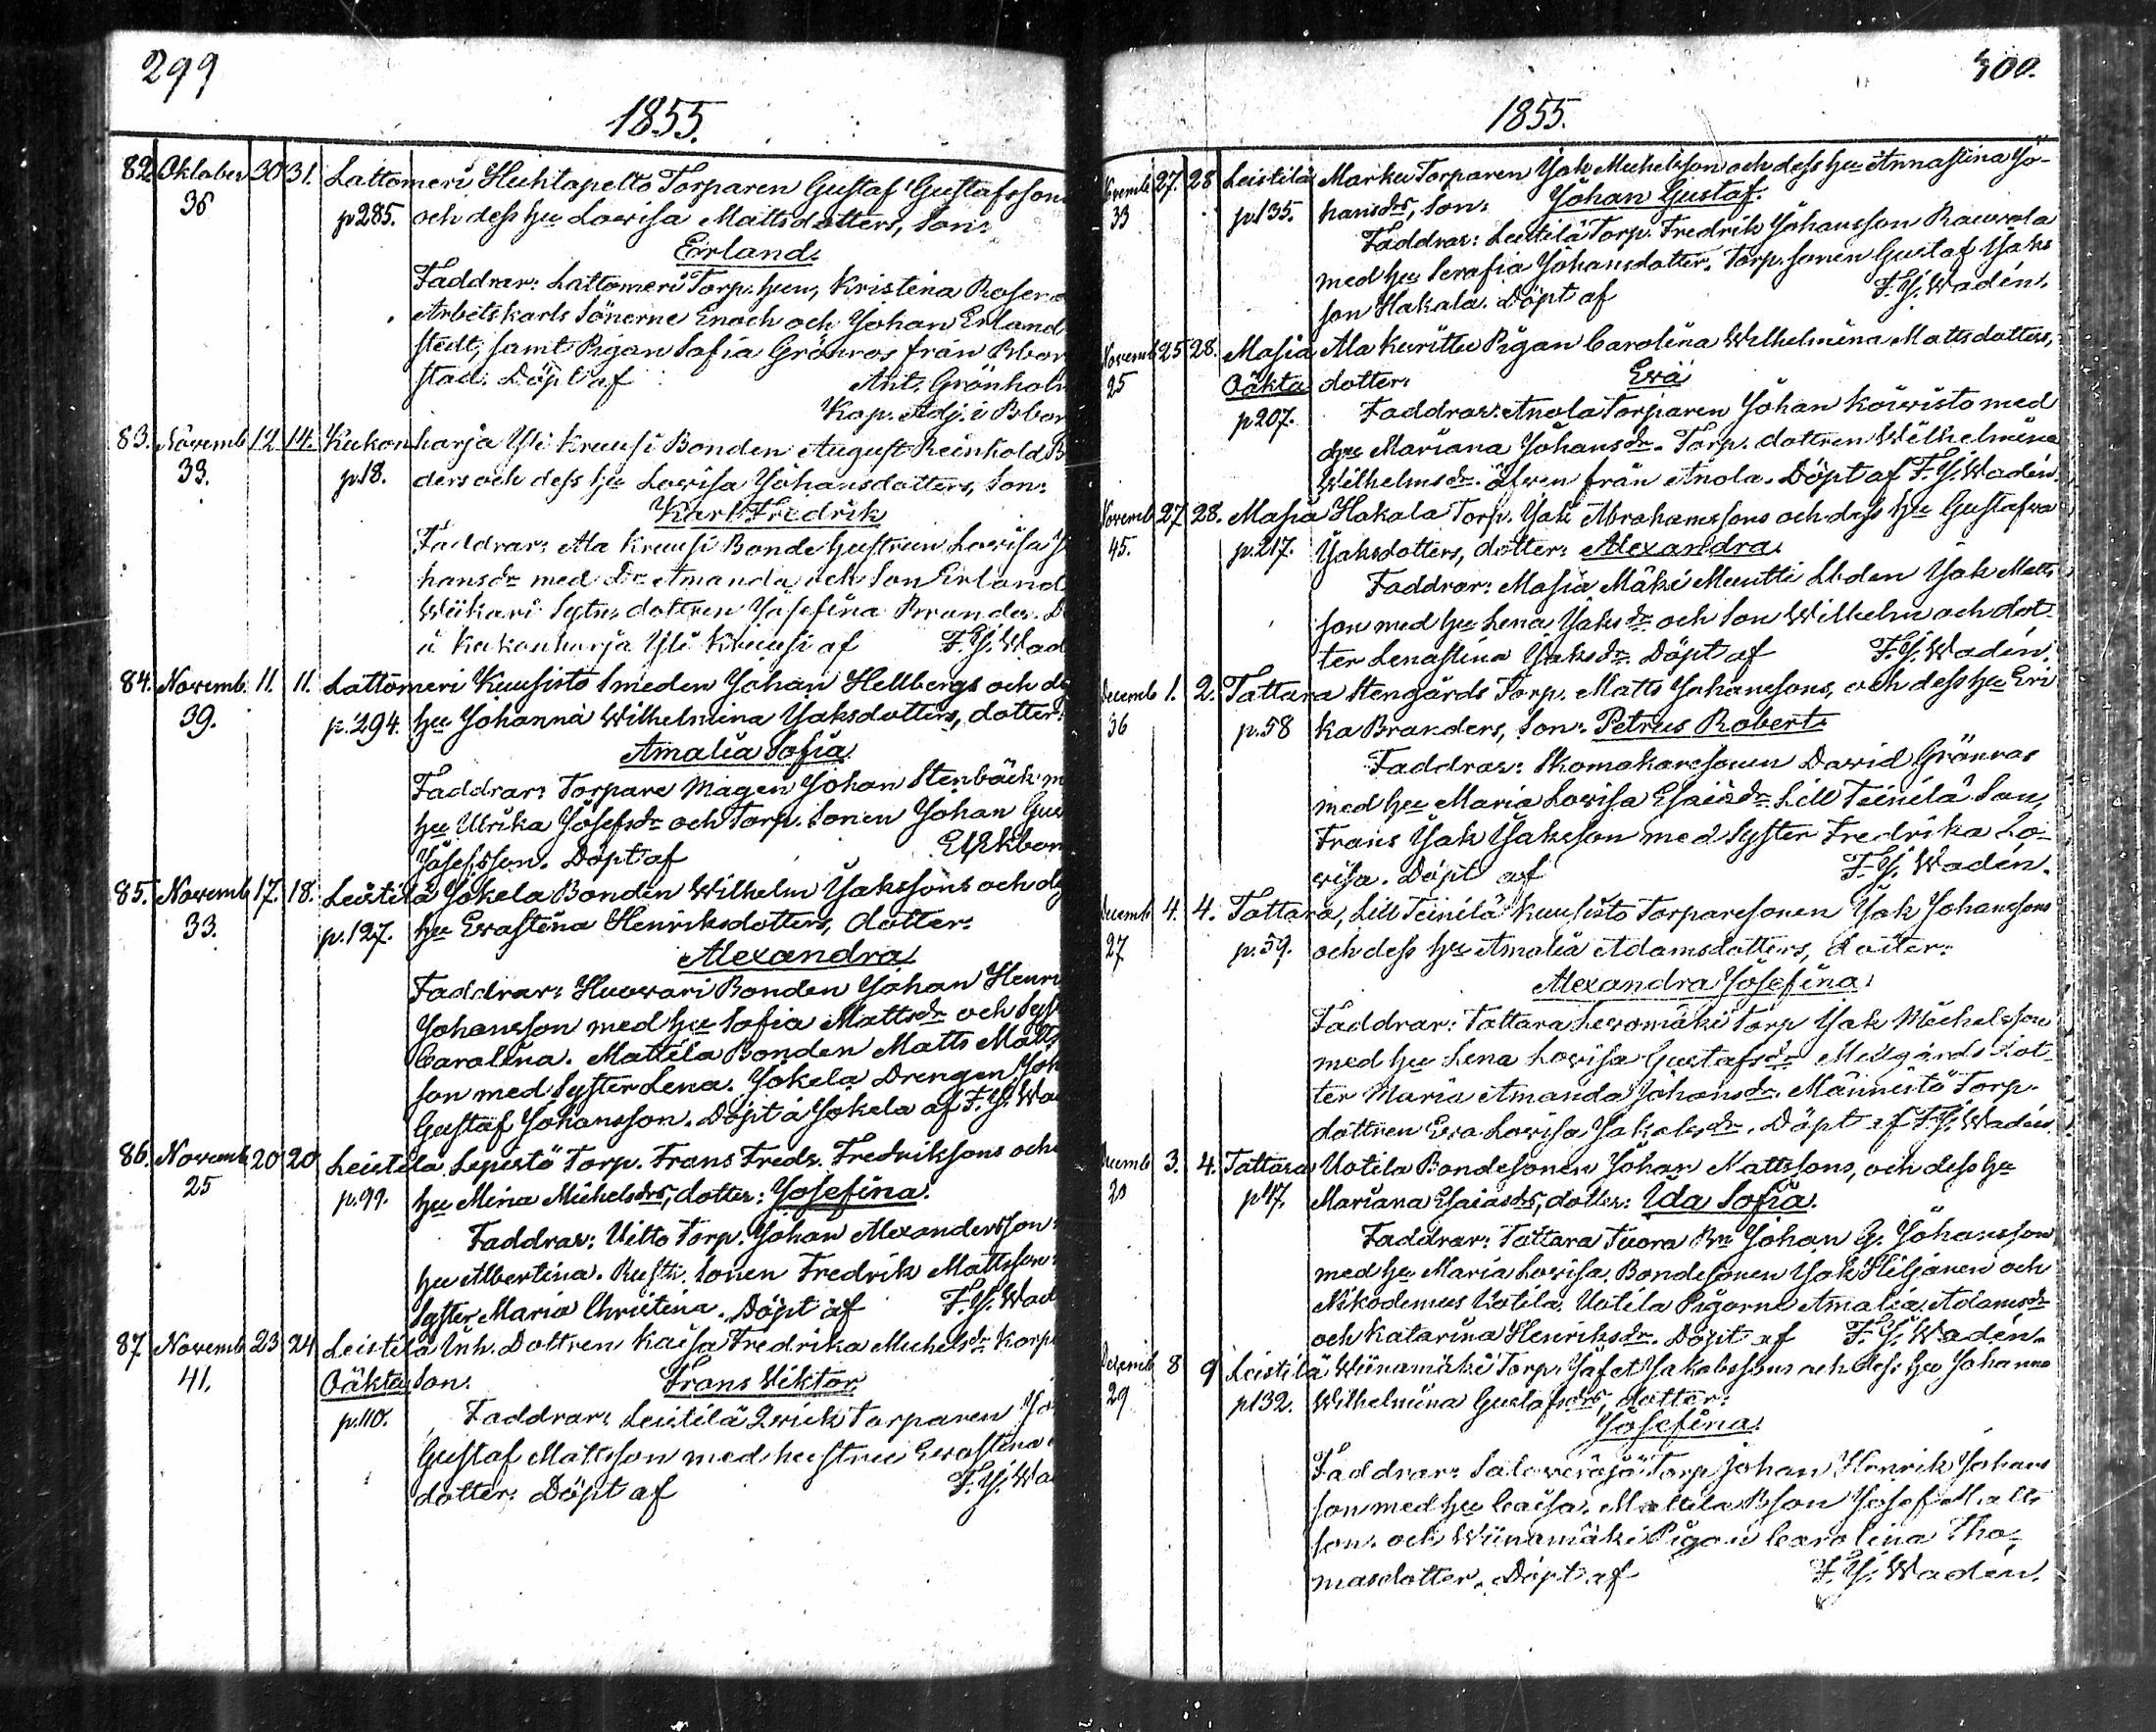 299
1855.
82. Oktober 30. 31. Lattomeri Huhtapelto Torparen Gustaf Gustafsson
36 p285. och dess hu Lowisa Mattsdotters, Son:
Erland.
Faddrar: Lattomeri Torp. hun, Kristina Rosen
Arbetskarls Sönerne Enoch och Johan Erland
stedt, samt Pigan Sofia Grönros från Bbor
stad. Döpt af Ant. Grönhol
Kap. Adj. i Bbor
83. Novemb 12 14. Kukonharja Yli Kruusi Bonden August Reinhold B
33. p.18. ders och dess hu Lowisa Johansdotters, Son:
Karl Fredrik
Faddrar: Ala Kruusi Bonde hustrun Lowisa J
hansdr med Dr Amanda och Son Erland
Wiikari Sytn. dottren Josefina Brander. D
i Kukonharja Yli Kruusi af F. J. Wad
84. Novemb. 11. 11. Lattomeri Kuusisto Smeden Johan Hellbergs och de
39. p.294. hu Johanna Wilhelmina Jaksdotters, dotter:
Amalia Sofia
Faddrar: Torpare Mågen Johan Stenbäck m
hu Ulrika Josefsdr och Torp. Sonen Johan Gus
Josefsson. Döpt af Ekbom
85. Novemb 17. 18. Leistilä Jokela Bonden Wilhelm Jakssons och de
33. p.127. hu Ewastina Henriksdotters, dotter:
Alexandra
Faddrar: Huowari Bonden Johan Henri
Johansson med hu Sofia Mattsdr och Syst
Carolina. Mattila Bonden Matts Matts
son med Syster Lena. Jokela Drengen Joh
Gustaf Johansson. Döpt å Jokela af F. J. Wa
86. Novemb 20 20 Leistilä Lepistö Torp. Frans Fredr. Fredrikssons och
25 p.99. hu Mina Michelsdrs, dotter: Josefina.
Faddrar: Uitto Torp. Johan Alexandersson
hu Albertina. Rusth. Sonen Fredrik Mattsson
Syster Maria Christina. Döpt af F. J. Wad
87 Novemb 23 24 Leistilä Inh. Dottren Kaisa Fredrika Michelsdr Korp
41. Oäkta Son. Frans Viktor
p.110. Faddrar: Leistilä Qvick Torparen Jo
Gustaf Mattsson med hustru Ewastina
dotter. Döpt af F. J. Wa
300.
1855.
Novemb 27. 28 Leistilä Marku Torparen Jak Michelsson och dess hu Annastina Jo-
33 p.135. hansdrs, Son: Johan Gustaf.
Faddrar: Leistilä Torp. Fredrik Johansson Rauwola
med hu Serafia Johansdotter. Torp. sonen Gustaf Jaks
son Hakala. Döpt af F. J. Wadén.
Novemb 25 28. Masia Ala Kurittu Pigan Carolina Wilhelmina Mattsdotters,
25 Oäkta dotter: Ewa
p207. Faddrar: Anola Torparen Johan Koiwisto med
hu Mariana Johansdr. Torp. dottren Wilhelmina
Wilhelmsdr. äfwen från Anola. Döpt af F. J. Wadén.
Novemb 27 28. Masia Hakala Torp. Jak Abrahamssons och dess hu Gustafwa
45. p.217. Jaksdotters, dotter: Alexandra.
Faddrar: Masia Mäki Muutti Lbden Jak Matts
son med hu Lena Jaksdr och Son Wilhelm och dot-
ter Lenastina Jaksdr. Döpt af F. J. Wadén.
Decemb 1. 2. Tattara Stengårds Torp. Matts Johanssons, och dess hu Eri
36 p.58 ka Branders, Son: Petrus Robert
Faddrar: Skomakaresonen Dawid Grönros
med hu Maria Lowisa Esaiædr. Lill Teinilä Son,
Frans Jak Jaksson med Syster Fredrika Lo-
wisa. Döpt af F. J. Wadén.
Decemb 4. 4. Tattara, Lill Teinilä Kuusisto Torparesonen Jak Johanssons
27 p.59. och dess hu Amalia Adamsdotters, dotter:
Alexandra Josefina.
Faddrar: Tattara Lewomäki Torp Jak Michelsson
med hu Lena Lowisa Gustafsdr Mellgårds dot-
ter Maria Amanda Johansdr. Männistö Torp.
dottren Ewa Lowisa Jakobsdr. Döpt af F. J. Wadén.
Decemb 3. 4. Tattara Uotila Bondesonen Johan Mattssons, och dess hu
20 p47. Mariana Esaiædrs, dotter: Ida Sofia.
Faddrar: Tattara Tuora Bn Johan G. Johansson
med hu Maria Lowisa. Bondesonen Jak Hiljanen och
Nikodemus Uotila. Uotila Pigorne Amalia Adamsdr
och Katarina Henriksdr. Döpt af F. J. Wadén.
Decemb 8 9 Leistilä Wiinamäki Torp. Jafet Jakobssons och dess hu Johanna
29 p132. Wilhelmina Gustafsdrs, dotter:
Josefina.
Faddrar: Torp Johan Henrik Johans
son med hu Caisa. Mattila Bson Josef Matts
son. och Wiinamäki Pigan Carolina Tho-
masdotter. Döpt af F. J. Wadén.